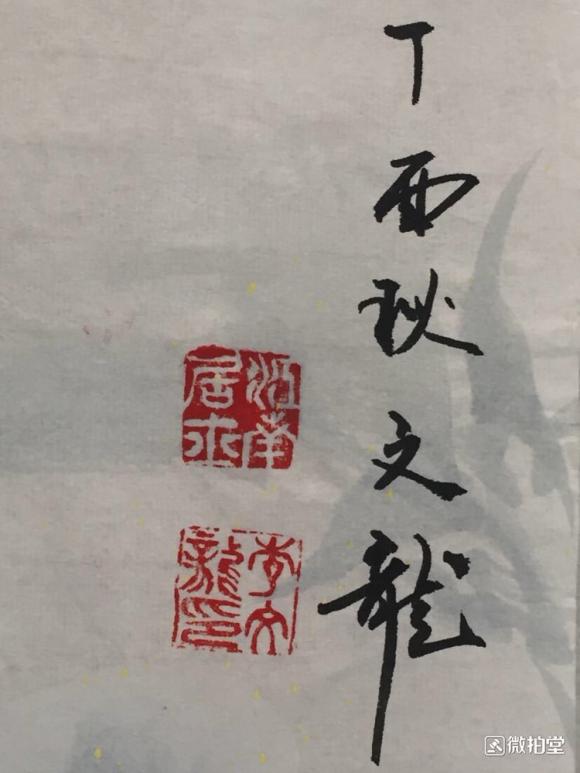 丁酉秋文龍
江南居士
李文龍印
微拍堂